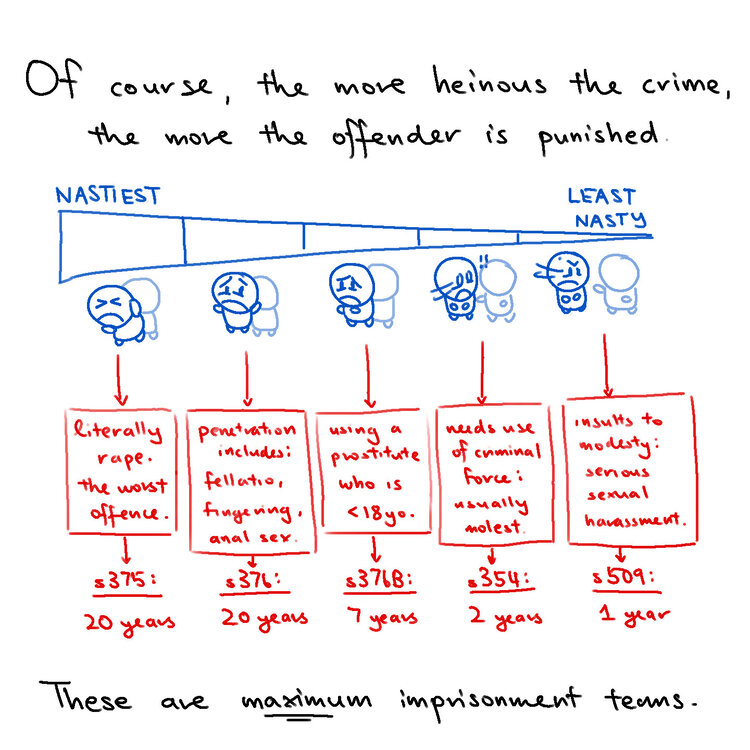 Of course, the more heinous the crime,
the more the offender is punished.
NASTIEST
LEAST
NASTY
!!
literally
rape.
the worst
offence.
s375:
20 years
penetration
includes:
fellatio,
fingering,
anal sex.
s376:
20 years
using a
prostitute
who is
<18yo.
s376B:
7 years
needs use
of criminal
force:
usually
molest.
s354:
2 years
insults to
modesty:
serious
sexual
harassment.
s509:
1 year
These are maximum imprisonment terms.